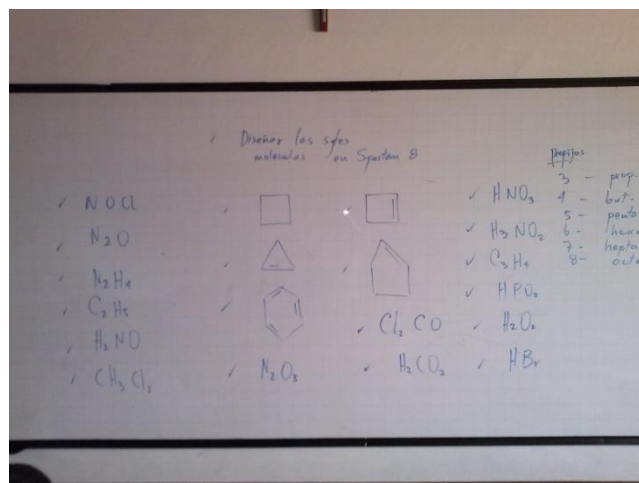 Diseñar las sgtes
moleculas en Spartan 8
NOCl
N2O
N2H4
C2H5
H2NO
CH3Cl2
N2O3
Cl2CO
H2CO3
HNO3
H3NO2
C3H4
H2O2
HBr
prefijos
3 - prop.
4 - but.
5 - penta
6 - hexa
7 - hepta
8 - octa